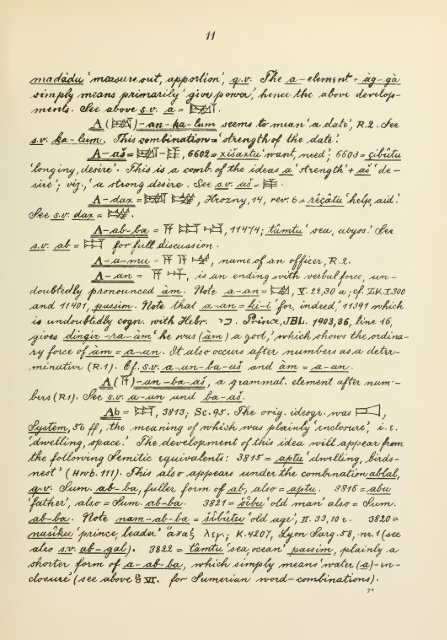 11
madâdu 'measure out, apportion', q.v. The a-element + àg-gà
simply means primarily 'give power', hence the above develop-
ments. See above s.v. a =
A ( )-an-ka-lum seems to mean 'a date', R.2. See
s.v. ka-lum. This combination = 'strength of the date'.
A-aš = 6602 = xišaxtu 'want, need'; 6603 = çibûtu
'longing, desire'. This is a comb. of the ideas a 'strength' + aš 'de-
sire'; viz., 'a strong desire'. See s.v. aš =
A-dax = Hrozny, 14, rev. 6 = rêçâtu 'help, aid'.
See s.v. dax =
A-ab-ba = 11474; tâmtu 'sea, abyss'. See
s.v. ab = for full discussion.
A-a-mu = name of an officer, R.2.
A-an = is an ending with verbal force, un-
doubtedly pronounced àm. Note a-an = V. 22,30 a, cf. ZK.I.300
and 11401, passim. Note that a-an = ki-i 'for, indeed', 11391 which
is undoubtedly cogn. with Hebr. כי. Prince, JBL. 1903, 36, line 16,
gives dingir-ra-àm 'he was (àm) a god', which shows the ordina-
ry force of àm = a-an. It also occurs after numbers as a deter-
minative (R.1). Cf. s.v. a-an-ba-aš and am = a-an.
A( )-an-ba-aš, a grammat. element after num-
bers (R.1). See s.v. a-an and ba-aš.
Ab = 3813; Sc. 93. The orig. ideogr. was
System, 56 ff, the meaning of which was plainly 'inclosure', i.e.
'dwelling, space.' The development of this idea will appear from
the following Semitic equivalents: 3815 = aptu 'dwelling, birds-
nest' (Hwb. 111). This also appears under the combination ablal,
q.v. Sum. ab-ba, fuller form of ab, also = aptu. 3816 = abu
'father', also = Sum. ab-ba. 3821 = šîbu 'old man' also = Sum.
ab-ba. Note nam-ab-ba = šîbûtu 'old age', II. 33, 10 c. 3820 =
nasîku 'prince, leader' ἅπαξ λεγ.; K.4207, Lyon Sarg. 58, nr. 1 (see
also s.v. ab-gal). 3822 = tâmtu 'sea, ocean' passim, plainly a
shorter form of a-ab-ba, which simply means 'water (a)-in-
closure' (see above § VI. for Sumerian word-combinations).
7*